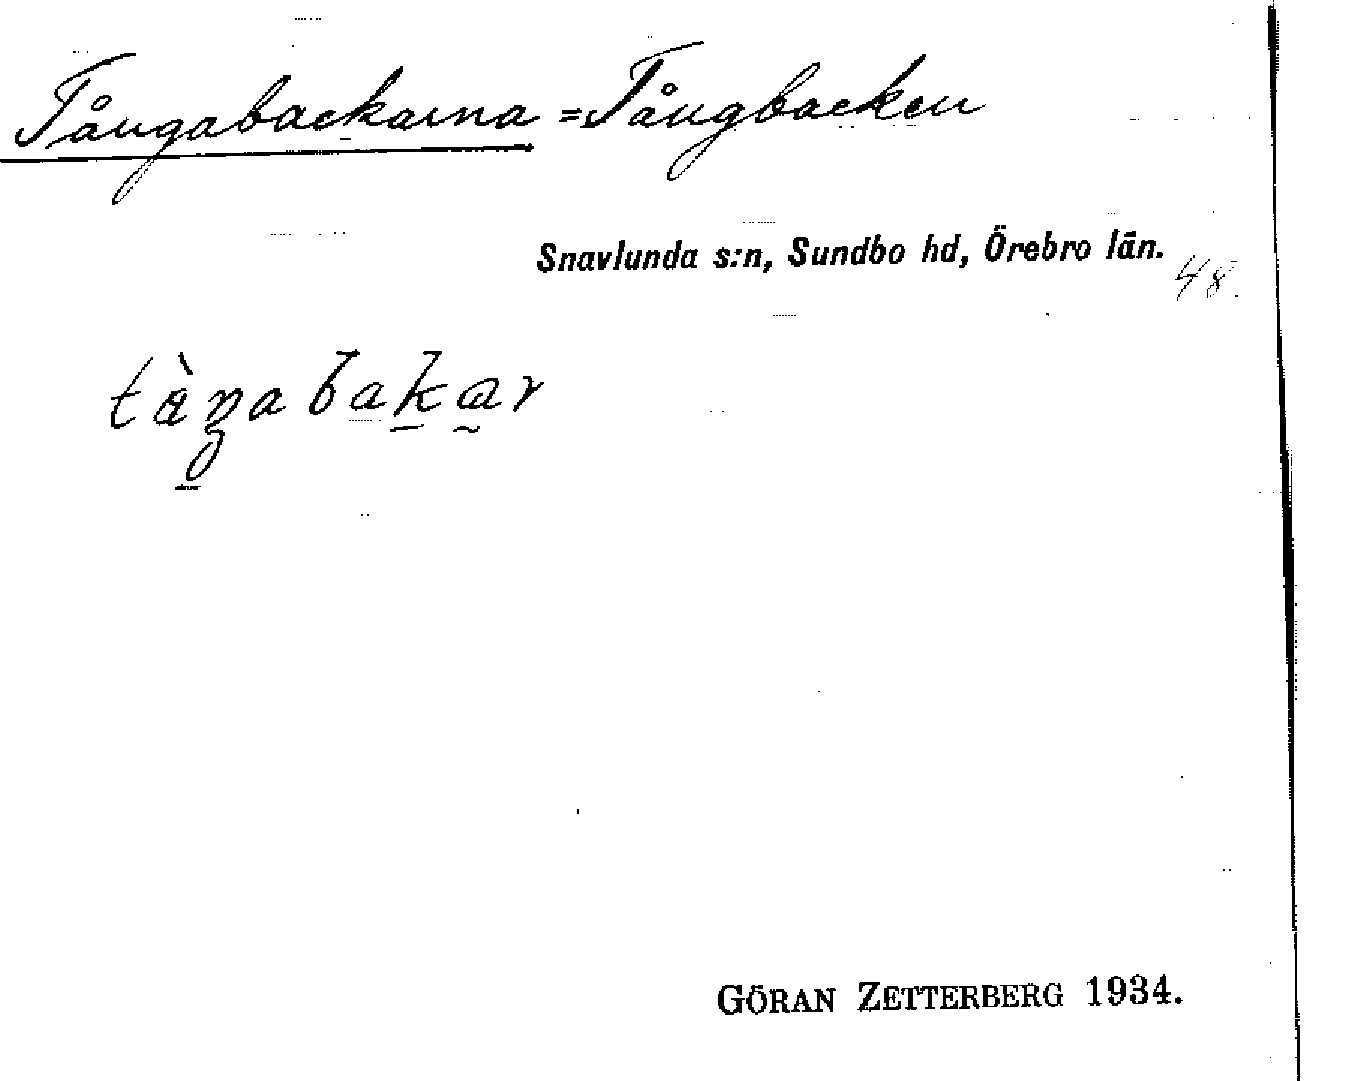 Tångabackarna = Tångbacken
Snavlunda s:n, Sundbo hd, Örebro län. 48.
tàŋabakar
GÖRAN ZETTERBERG 1934.